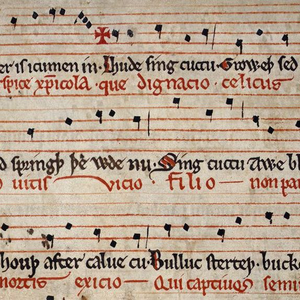 er is icumen in. Lhude sing cuccu. Groweþ sed
spice xp̄icola. que dignacio. celicus
d springþ þe wde nu. Sing cuccu Awe bl
uitis vicio. filio non par
houþ after calue cu. Bulluc sterteþ. bucke
mortis exicio Qui captiuos semi